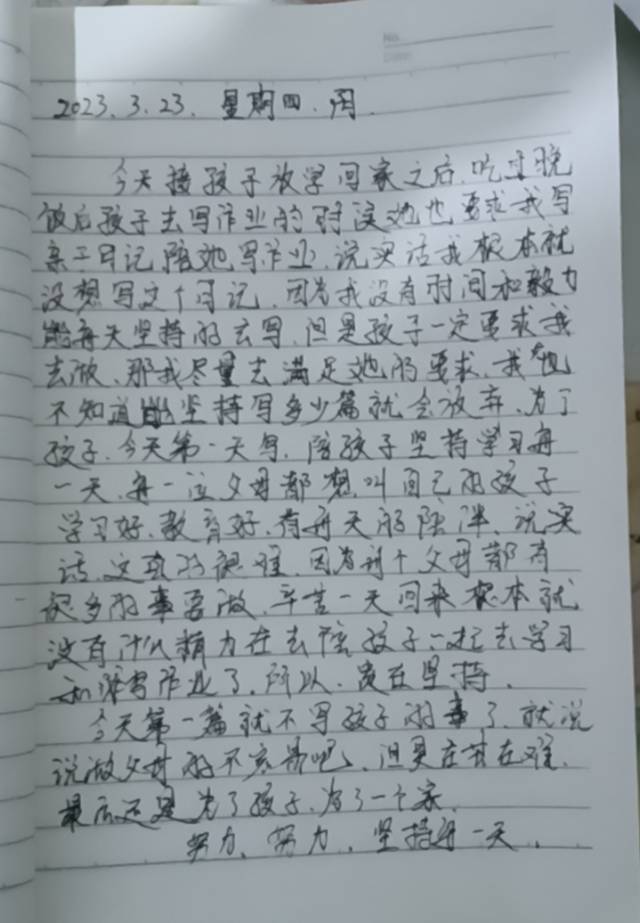 No.
Date
2023.3.23. 星期四. 阴.
今天接孩子放学回家之后, 吃过晚
饭后孩子去写作业的时没她也要求我写
亲子日记陪她写作业, 说实话我根本就
没想写这个日记, 因为我没有时间和毅力
能每天坚持的去写, 但是孩子一定要求我
去做, 那我尽量去满足她的要求, 我也
不知道能坚持写多少篇就会放弃, 为了
孩子, 今天第一天写, 陪孩子坚持学习每
一天, 每一位父母都想叫自己的孩子
学习好, 教育好, 有每天的陪伴, 说实
话, 这真的很难, 因为每个父母都有
很多的事要做, 辛苦一天回来根本就
没有什么精力在去陪孩子一起去学习
和 作业了, 所以, 贵在坚持.
今天第一篇就不写孩子的事了, 就说
说做父母的不容易吧, 但是 在难,
最后还是为了孩子, 为了一个家.
努力, 努力, 坚持每一天.